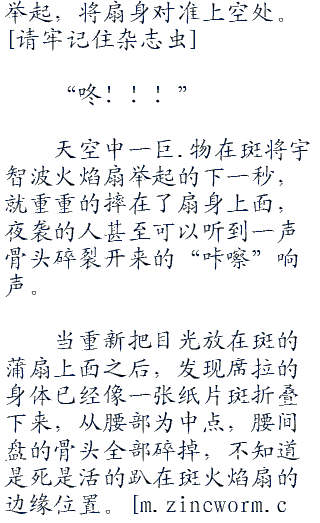 举起，将扇身对准上空处。
[请牢记住杂志虫]
“咚！！！”
天空中一巨.物在斑将宇
智波火焰扇举起的下一秒，
就重重的摔在了扇身上面，
夜袭的人甚至可以听到一声
骨头碎裂开来的“咔嚓”响
声。
当重新把目光放在斑的
蒲扇上面之后，发现席拉的
身体已经像一张纸片斑折叠
下来，从腰部为中点，腰间
盘的骨头全部碎掉，不知道
是死是活的趴在斑火焰扇的
边缘位置。[m.zincworm.c